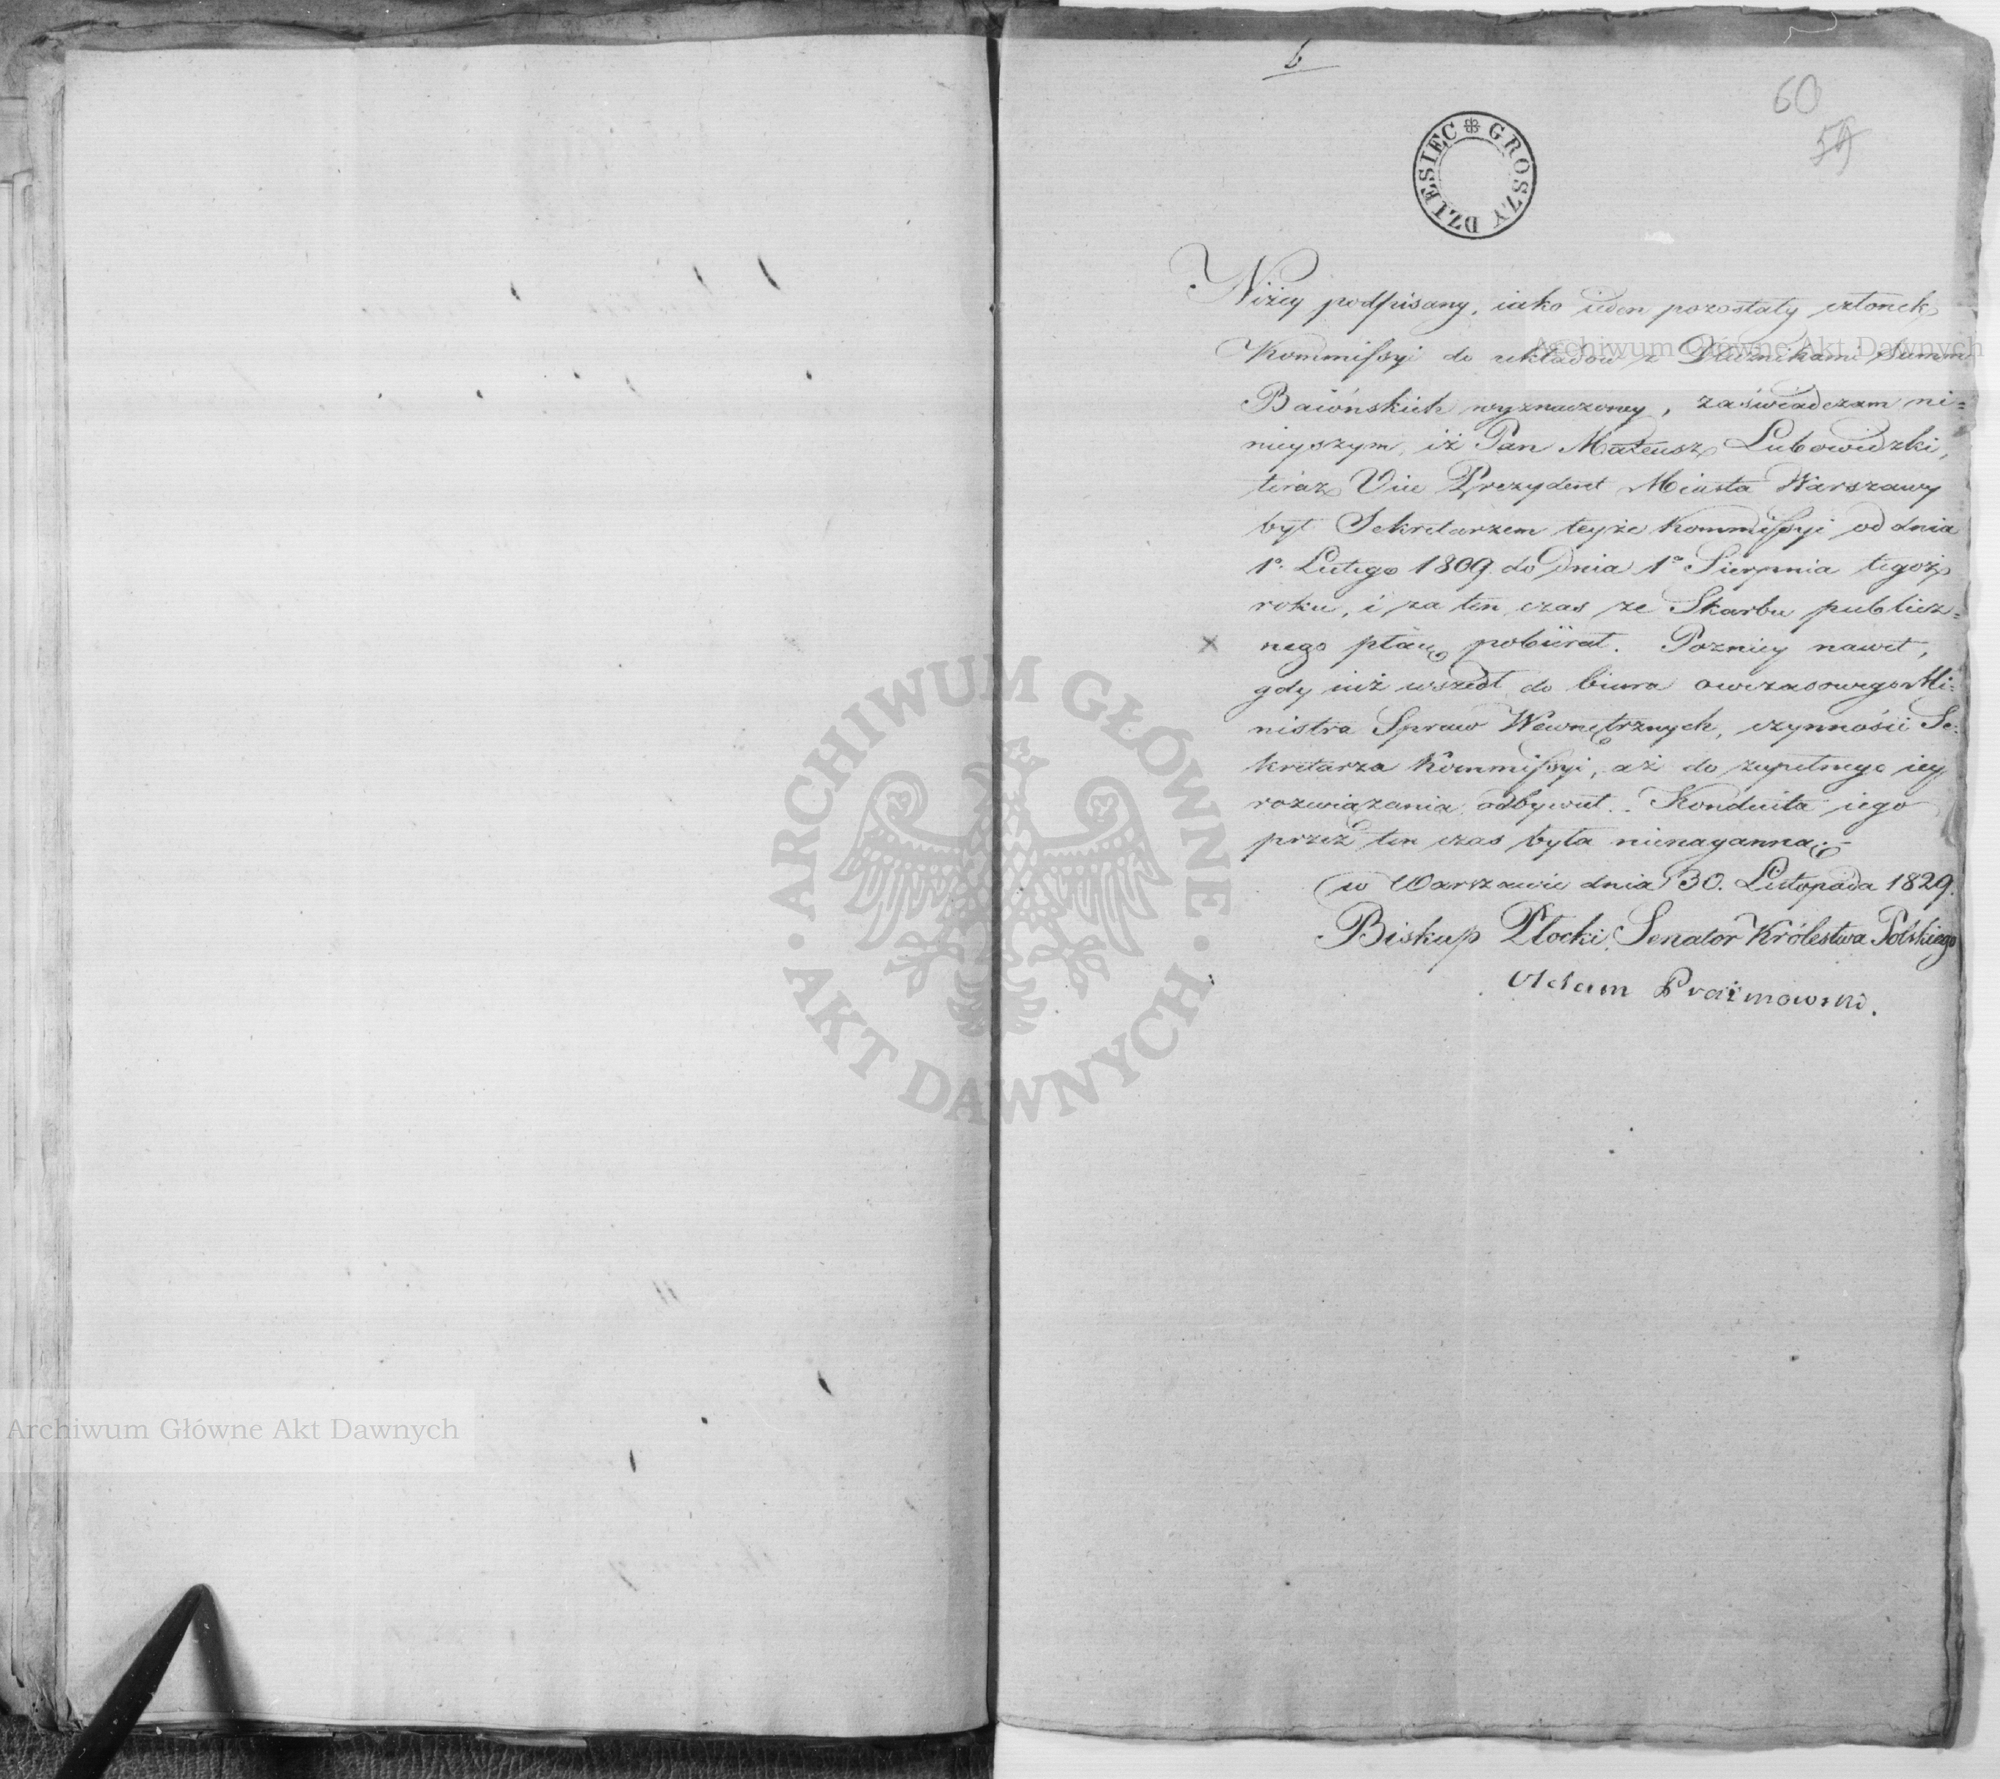 b
60
59
DZIESIEC GROSZY
Niżey podpisany, iako ieden pozostały członek
Kommissyi do układów z Dłużnikami Summ
Baiońskich wyznaczoney, zaświadczam ni=
nieyszym, iż Pan Mateusz Lubowidzki,
teraz Vice Prezydent Miasta Warszawy
był Sekretarzem teyże Kommissyi od dnia
1º Lutego 1809. do Dnia 1º Sierpnia tegoż
roku, i za ten czas ze Skarbu publicz=
nego płacę pobiérał. Pozniey nawet,
gdy iuż wszedł do biura owczasowego Mi=
nistra Spraw Wewnętrznych, czynności Se=
kretarza Kommissyi, aż do zupełnego iey
rozwiązania odbywał. Konduita iego
przez ten czas była nienaganna.-
w Warszawie dnia 30. Listopada 1829.
Biskup Płocki, Senator Królestwa Polskiego
Adam Prażmowski.
Archiwum Główne Akt Dawnych
ARCHIWUM GŁÓWNE AKT DAWNYCH
Archiwum Główne Akt Dawnych